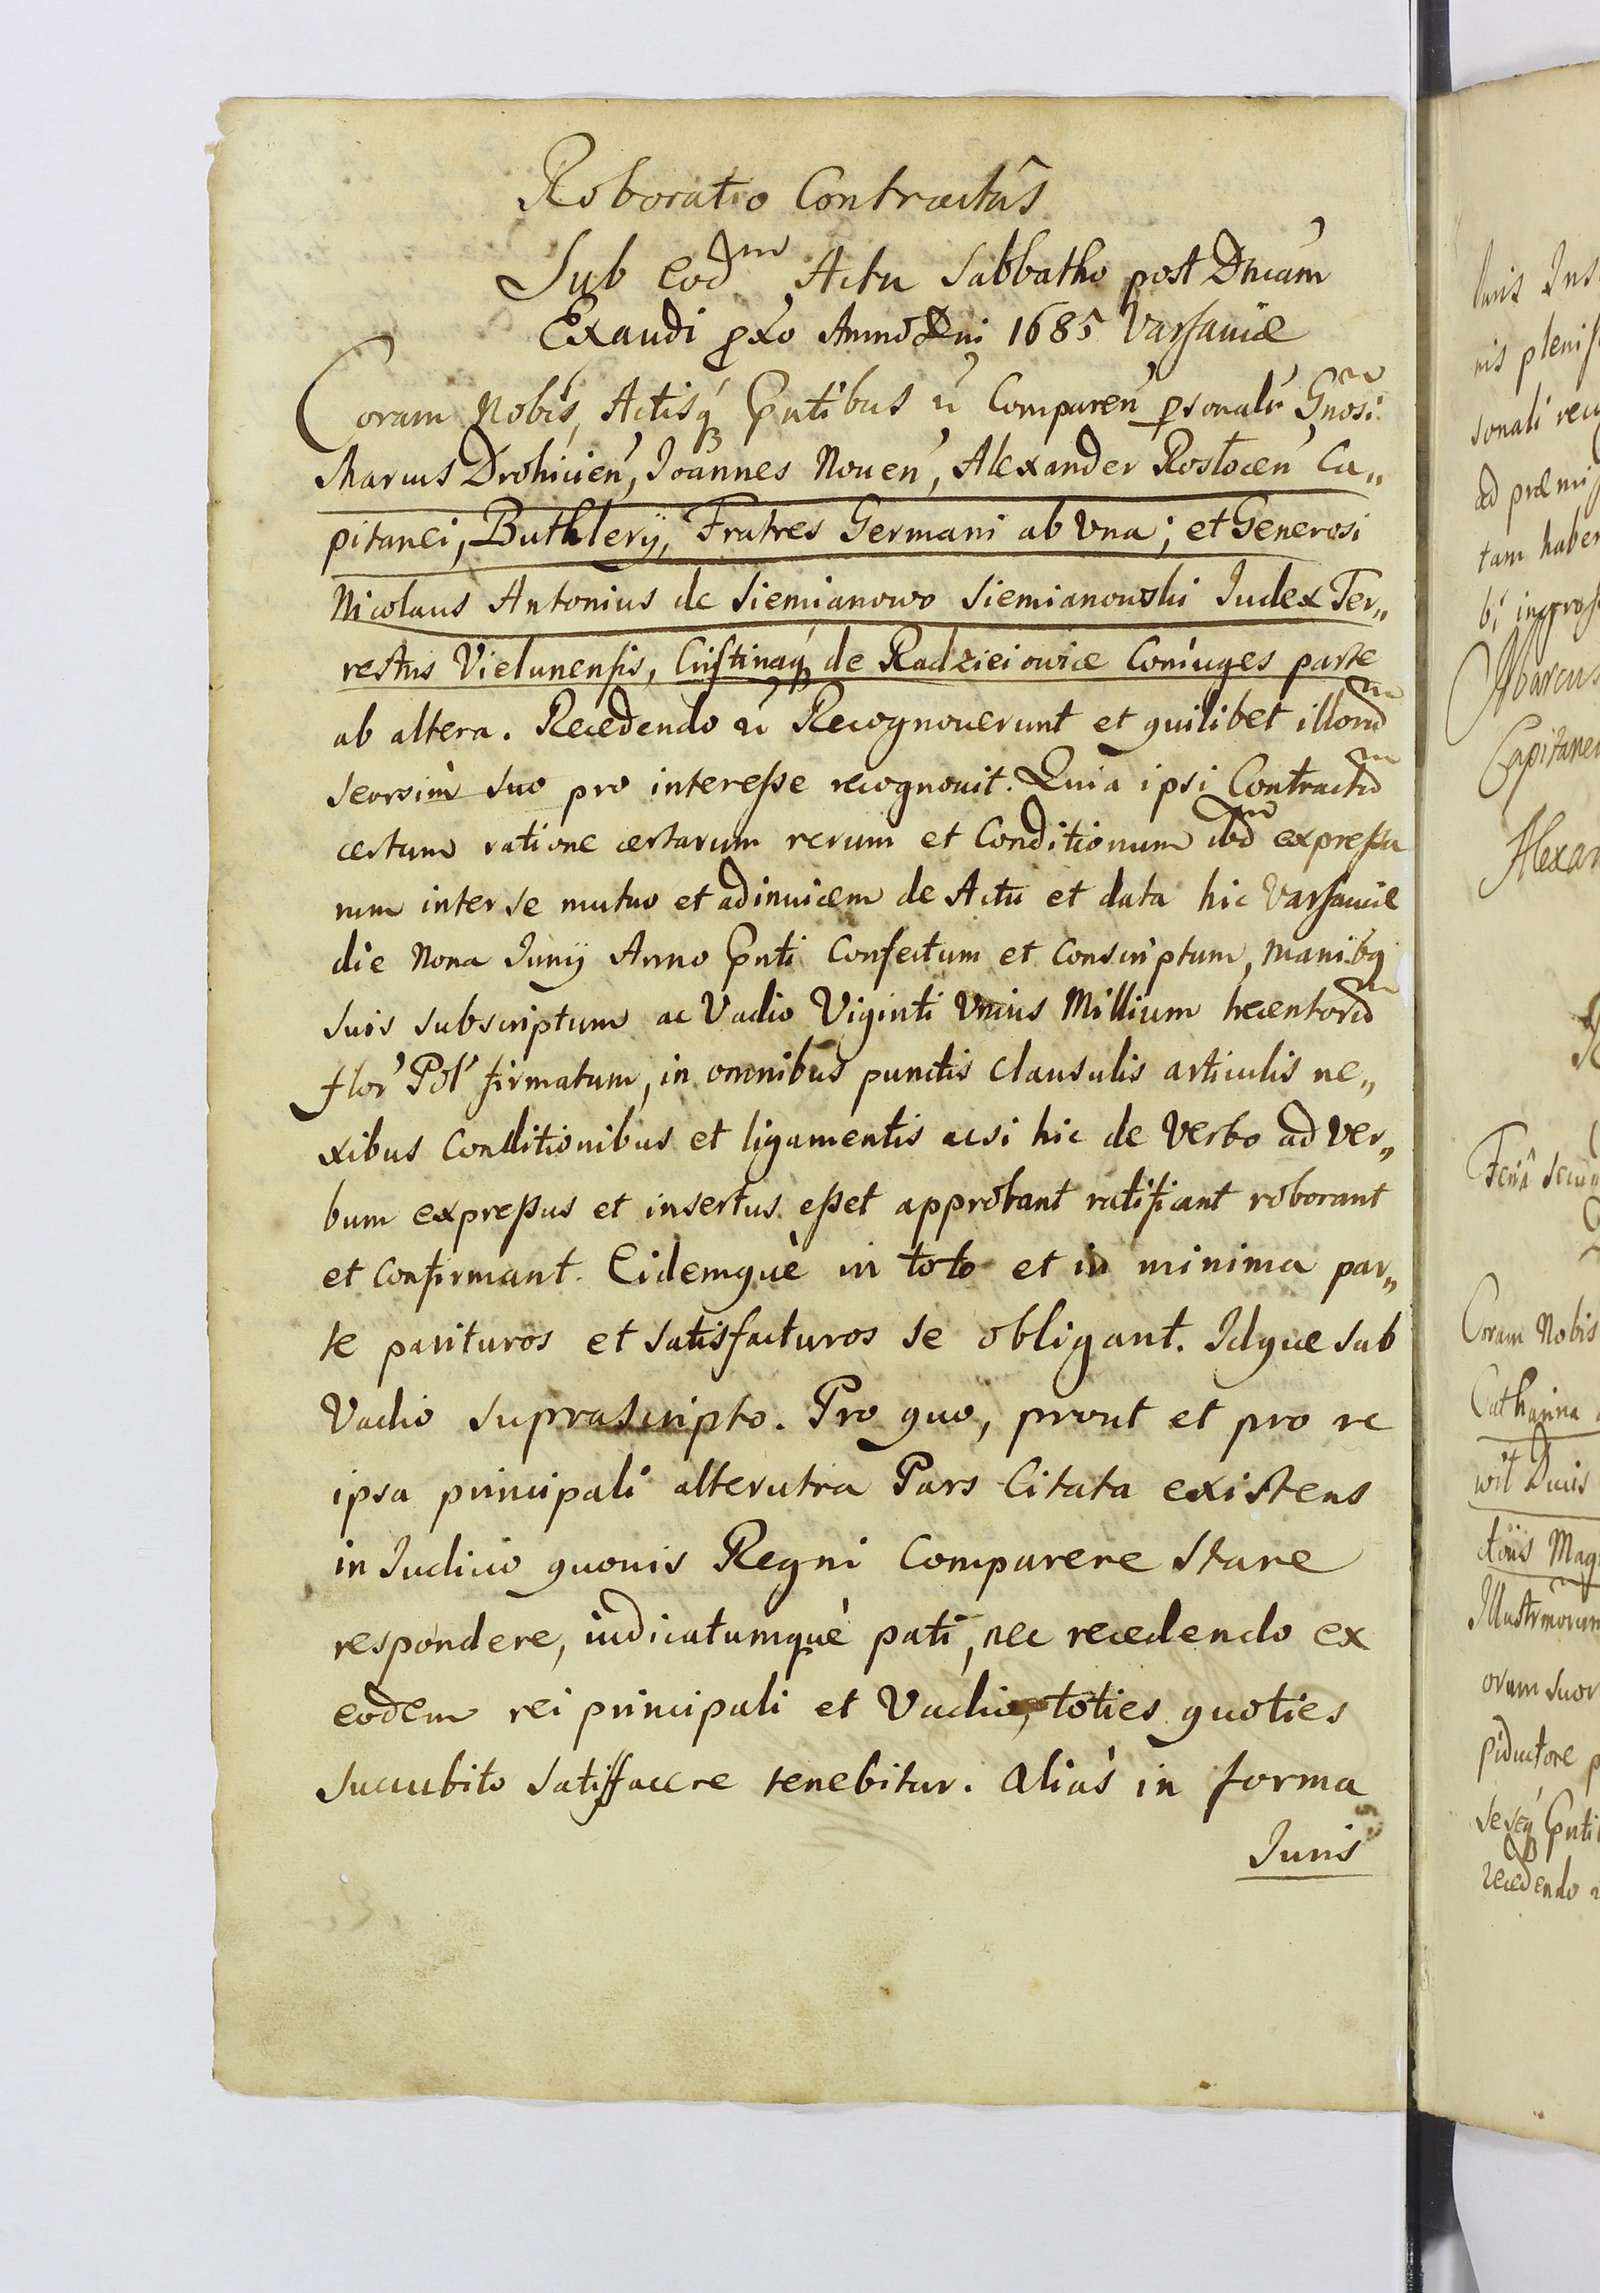 Roboratio Contractûs
Sub eodm Actu Sabbatho post Dnicam
Exaudi pxo Anno Dni 1685 Varsaviæ
Coram Nobis, Actisq Pntibus &c Comparen psonalr Gnosi
Marcus Drohicien, Joannes Noven, Alexander Rostocen Ca„
pitanei, Buthlery, Fratres Germani ab Una; et Generosi
Nicolaus Antonius de Siemianowo Siemianowski Judex Ter„
restris Vielunensis, Cristinaq de Radzieiowice Coniuges parte
ab altera. Recedendo &c Recognoverunt et quilibet illorum
seorsim suo pro interesse recognovit. Quia ipsi Contractum
certum ratione certarum rerum et Conditionum ibdm expressa
rum inter se mutuo et adinvicem de Actu et data hic Varsaviæ
die Nona Junij Anno Pnti Confectum et Conscriptum, manibq
suis subscriptum ac Vadio Viginti Unius Millium trecentorum
flor Pol firmatum, in omnibus punctis Clausulis articulis ne„
xibus Conditionibus et ligamentis acsi hic de Verbo ad Ver„
bum expressus et insertus esset approbant ratificant roborant
et Confirmant. Eidemquè in toto et in minima par„
te parituros et satisfacturos se obligant. Idque sub
Vadio suprascripto. Pro quo, prout et pro re
ipsa principali alterutra Pars Citata existens
in Judicio quovis Regni Comparere Stare
respondere, iudicatumquè pati, nec recedendo ex
eodem rei principali et Vadio, toties quoties
succubito satisfacere tenebitur. aliàs in forma
Juris